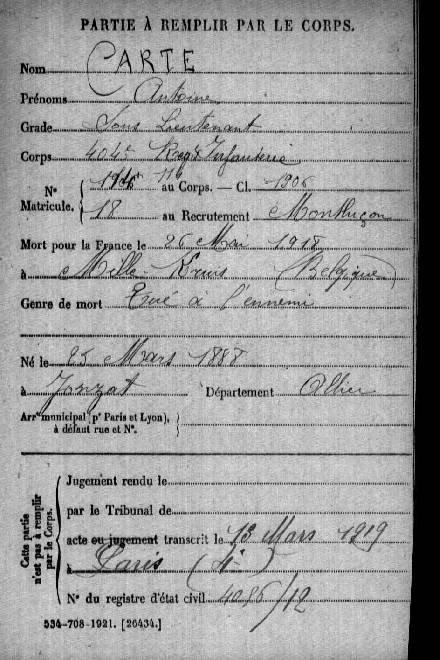 PARTIE À REMPLIR PAR LE CORPS.
Nom CARTE
Prénoms Antoine
Grade Sous Lieutenant
Corps 404e Regt Infanterie
N° Matricule. au Corps. — Cl. 1906
18 au Recrutement Montluçon
Mort pour la France le 26 Mai 1918
à Mille-Kruis (Belgique)
Genre de mort Tué à l'ennemi
Né le 25 Mars 1888
à Jenzat Département Allier
Arrt municipal (pr Paris et Lyon),
à défaut rue et N°.
Cette partie n'est pas à remplir par le Corps.
Jugement rendu le
par le Tribunal de
acte ou jugement transcrit le 13 Mars 1919
à Paris (4e)
N° du registre d'état civil 4086/12
534-708-1921. [26434.]